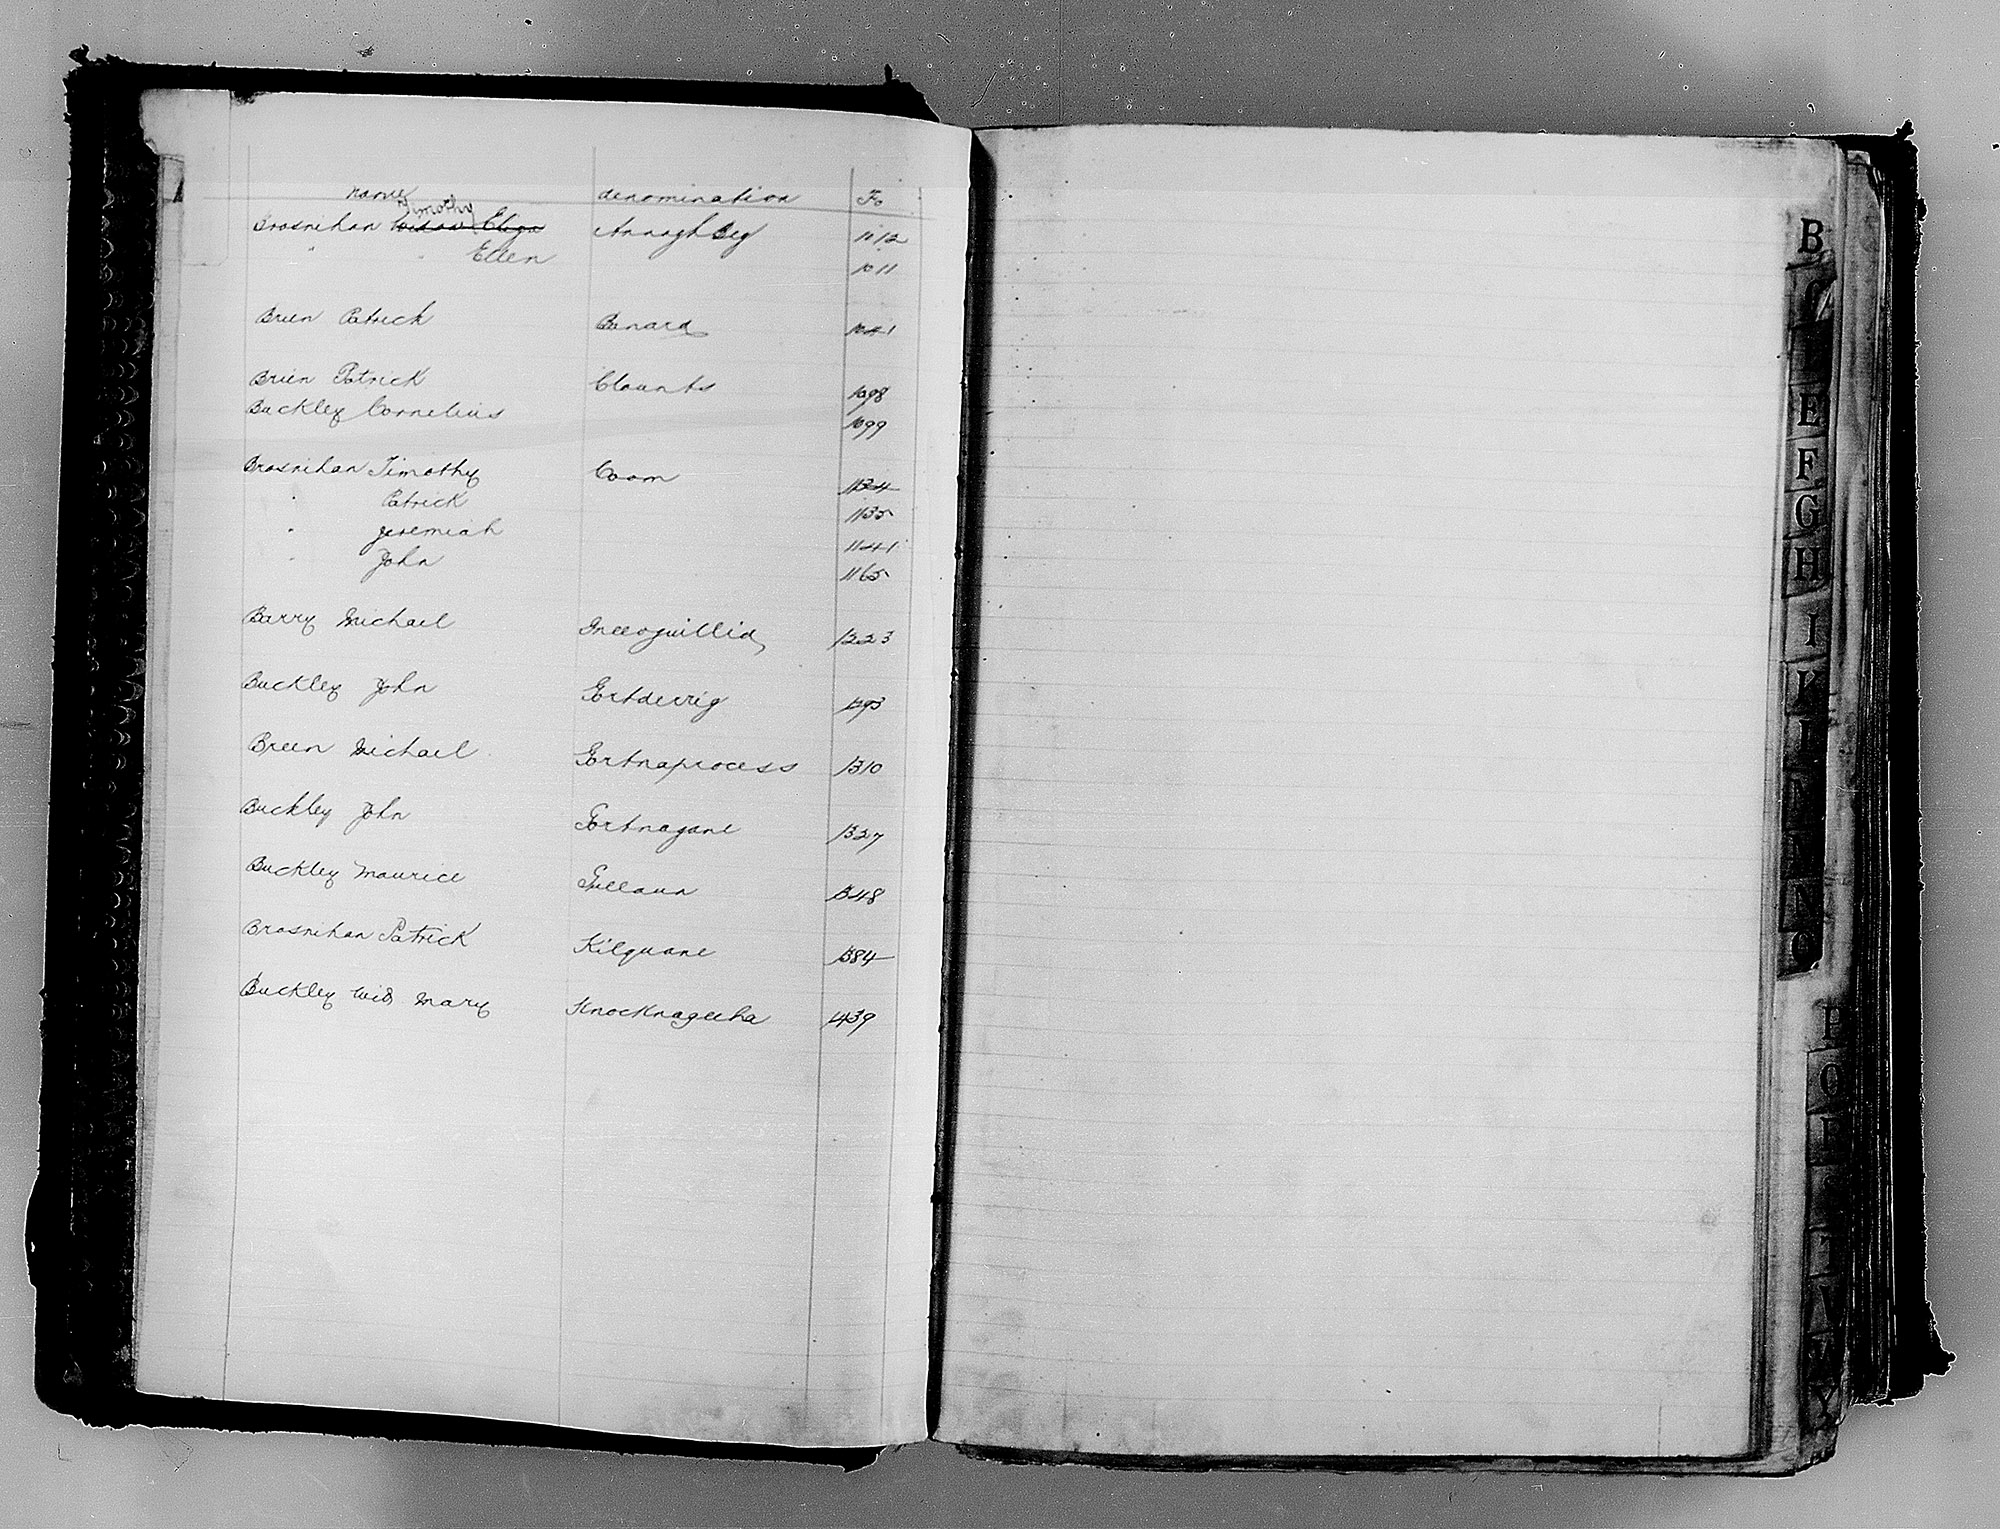 name denomination Fo
Timothy
Brosnihan Widow Eliza Annagh Beg 1012
" " Ellen 1011
Brien Patrick Banard 1041
Brien Patrick Claunts 1098
Buckley Cornelius 1099
Brosnihan Timothy Coom 1134
" Patrick 1135
" Jeremiah 1141
" John 1165
Barry Michael 1223
Buckley John Gortderrig 1293
Breen Michael Gortnaprocess 1310
Buckley John Gortnagane 1327
Buckley Maurice Gullaun 1348
Brosnihan Patrick Kilquane 1384
Buckley Wid Mary Knocknageeha 1439
B
E
F
G
H
I
K
L
N
O
P
Q
R
S
T
V
W
Y